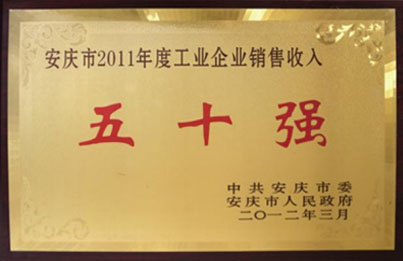 安庆市2011年度工业企业销售收入
五十强
中共安庆市委
安庆市人民政府
二〇一二年三月